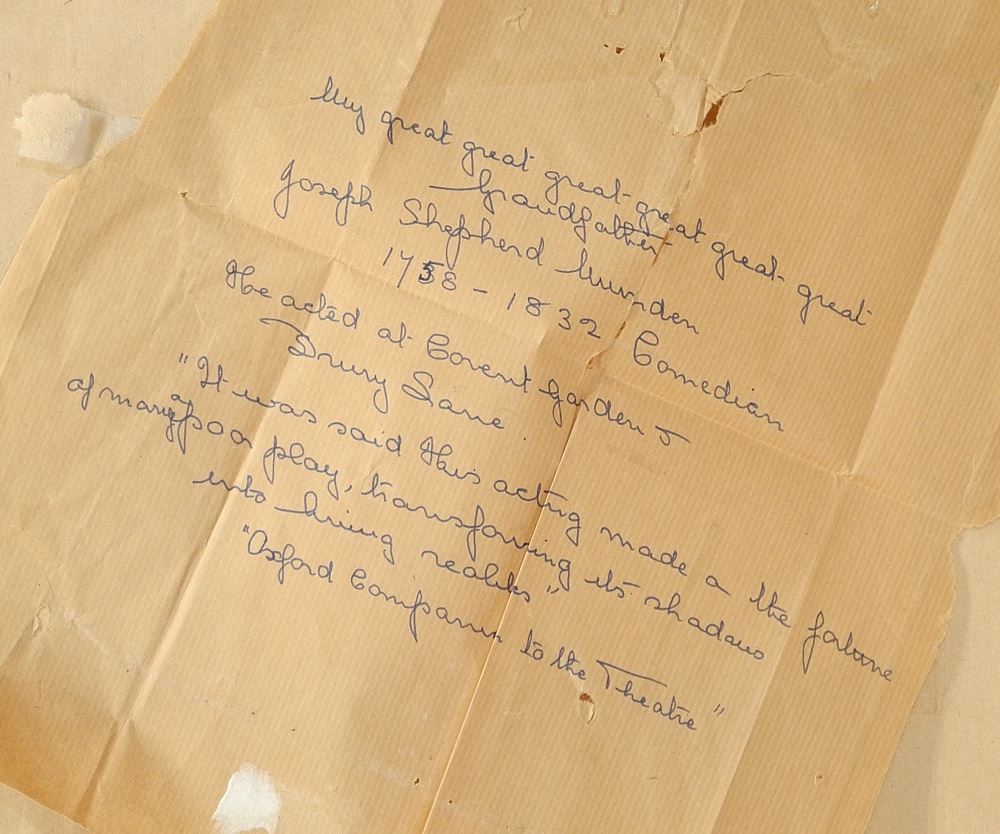 My great great great-great great- great
Grandfather
Joseph Shepherd Munden
1758 - 1832 Comedian
He acted at Covent Garden &
Drury Lane.
"It was said this acting made a the fortune
of many a poor play, transforming its shadows
into living realities"
"Oxford Companion to the Theatre"